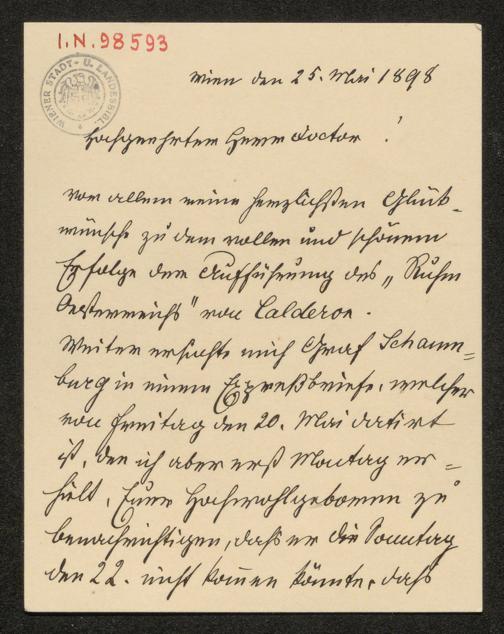 I.N. 98593
WIENER STADT- U. LANDESBIBL.
Wien den 25. Mai 1898
Hochgeehrter Herr Doctor!
Vor allem meine herzlichsten Glück-
wünsche zu dem vollen und schönen
Erfolge der Aufführung des „Ruhm
Oesterreichs" von Calderon.
Weiter ersuchte mich Graf Schaum-
burg in einem Expreßbriefe, welcher
von Freitag den 20. Mai datirt
ist, den ich aber erst Montag er-
hielt, Euer Hochwohlgeboren zu
benachrichtigen, daß er die Sonntag
den 22. nicht kommen könnte, daß